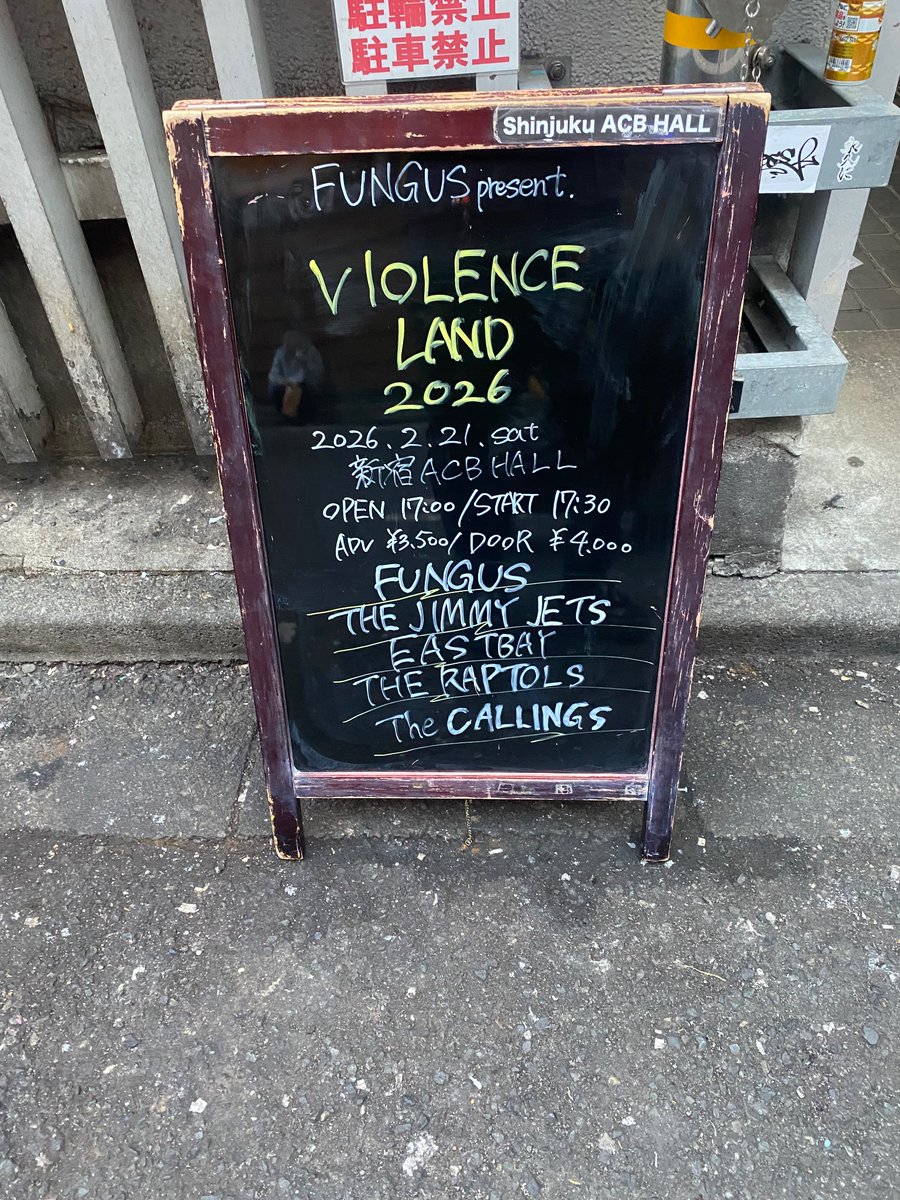 駐輪禁止
駐車禁止
Shinjuku ACB HALL
FUNGUS present.
VIOLENCE
LAND
2026
2026.2.21.sat
新宿ACB HALL
OPEN 17:00/START 17:30
ADV ¥3.500/DOOR ¥4.000
FUNGUS
THE JIMMY JETS
EASTBAY
THE RAPTOLS
The CALLINGS